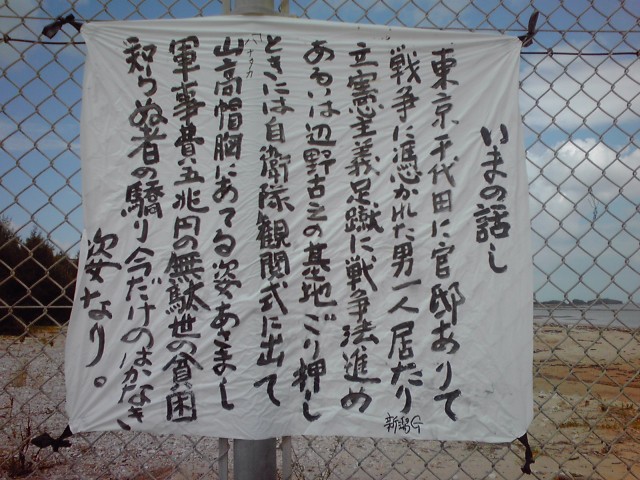 いまの話し
東京千代田に官邸ありて
戦争に憑かれた男一人居たり
立憲主義足蹴に戦争法進め
あるいは辺野古えの基地ごり押し
ときには自衛隊観閲式に出て
山高帽胸にあてる姿あさまし
軍事費五兆円の無駄世の貧困
知らぬ者の驕り今だけのはかなき
姿なり。